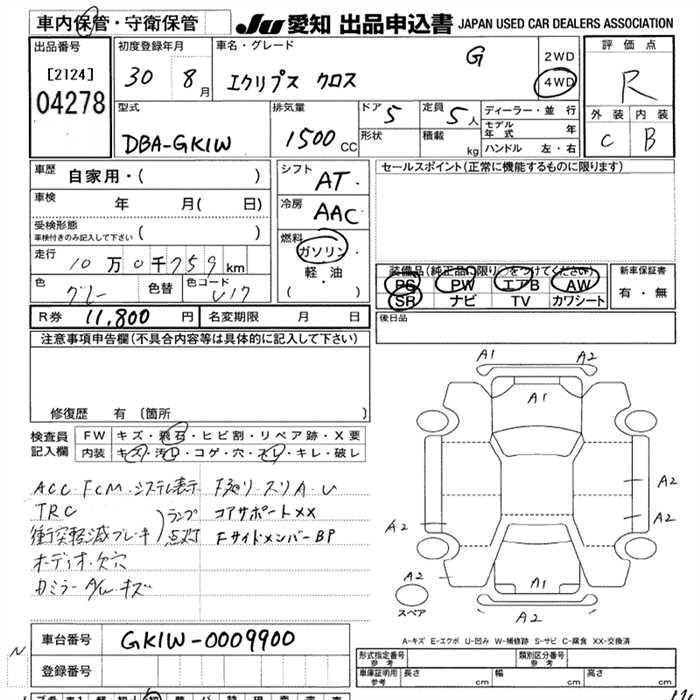 車内保管・守衛保管
JU 愛知 出品申込書 JAPAN USED CAR DEALERS ASSOCIATION
出品番号
[2124]
04278
初度登録年月
30 8月
車名・グレード
エクリプス クロス G
2WD
4WD
評価点
R
外装 内装
C B
型式
DBA-GK1W
排気量
1500 CC
ドア 5
形状
定員 5人
積載 kg
ディーラー・並行
モデル年式 年
ハンドル 左・右
車歴 自家用・( )
車検 年 月( 日)
受検形態
車検付きのみ記入して下さい ( )
走行 10万0千759 km
色 グレー 色替 色コード U17
シフト AT
冷房 AAC
燃料
ガソリン
軽・油
( )
セールスポイント(正常に機能するものに限ります)
装備品(純正品に限り○をつけてください)
PS PW エアB AW
SR ナビ TV カワシート
新車保証書
有・無
R券 11,800 円 名変期限 月 日
後日品
注意事項申告欄(不具合内容等は具体的に記入して下さい)
修復歴 有 (箇所 )
検査員
記入欄
FW キズ・飛石・ヒビ割・リペア跡・X要
内装 キズ・汚レ・コゲ・穴・スレ・キレ・破レ
ACC・FCM・システム表示
TRC
衝突軽減ブレーキ
ランプ
点灯
オーディオ欠穴
カミラーA/W・キズ
コアサポートXX
FサイドメンバーBP
A1
A2
A1
A2
A2
A2
A2
A1
A2
スペア
A-キズ E-エクボ U-凹み W-補修跡 S-サビ C-腐食 XX-交換済
N
車台番号 GK1W-0009900
登録番号
形式指定番号
参考
類別区分番号
参考
車庫証明用
参考
長さ cm 幅 cm 高さ cm